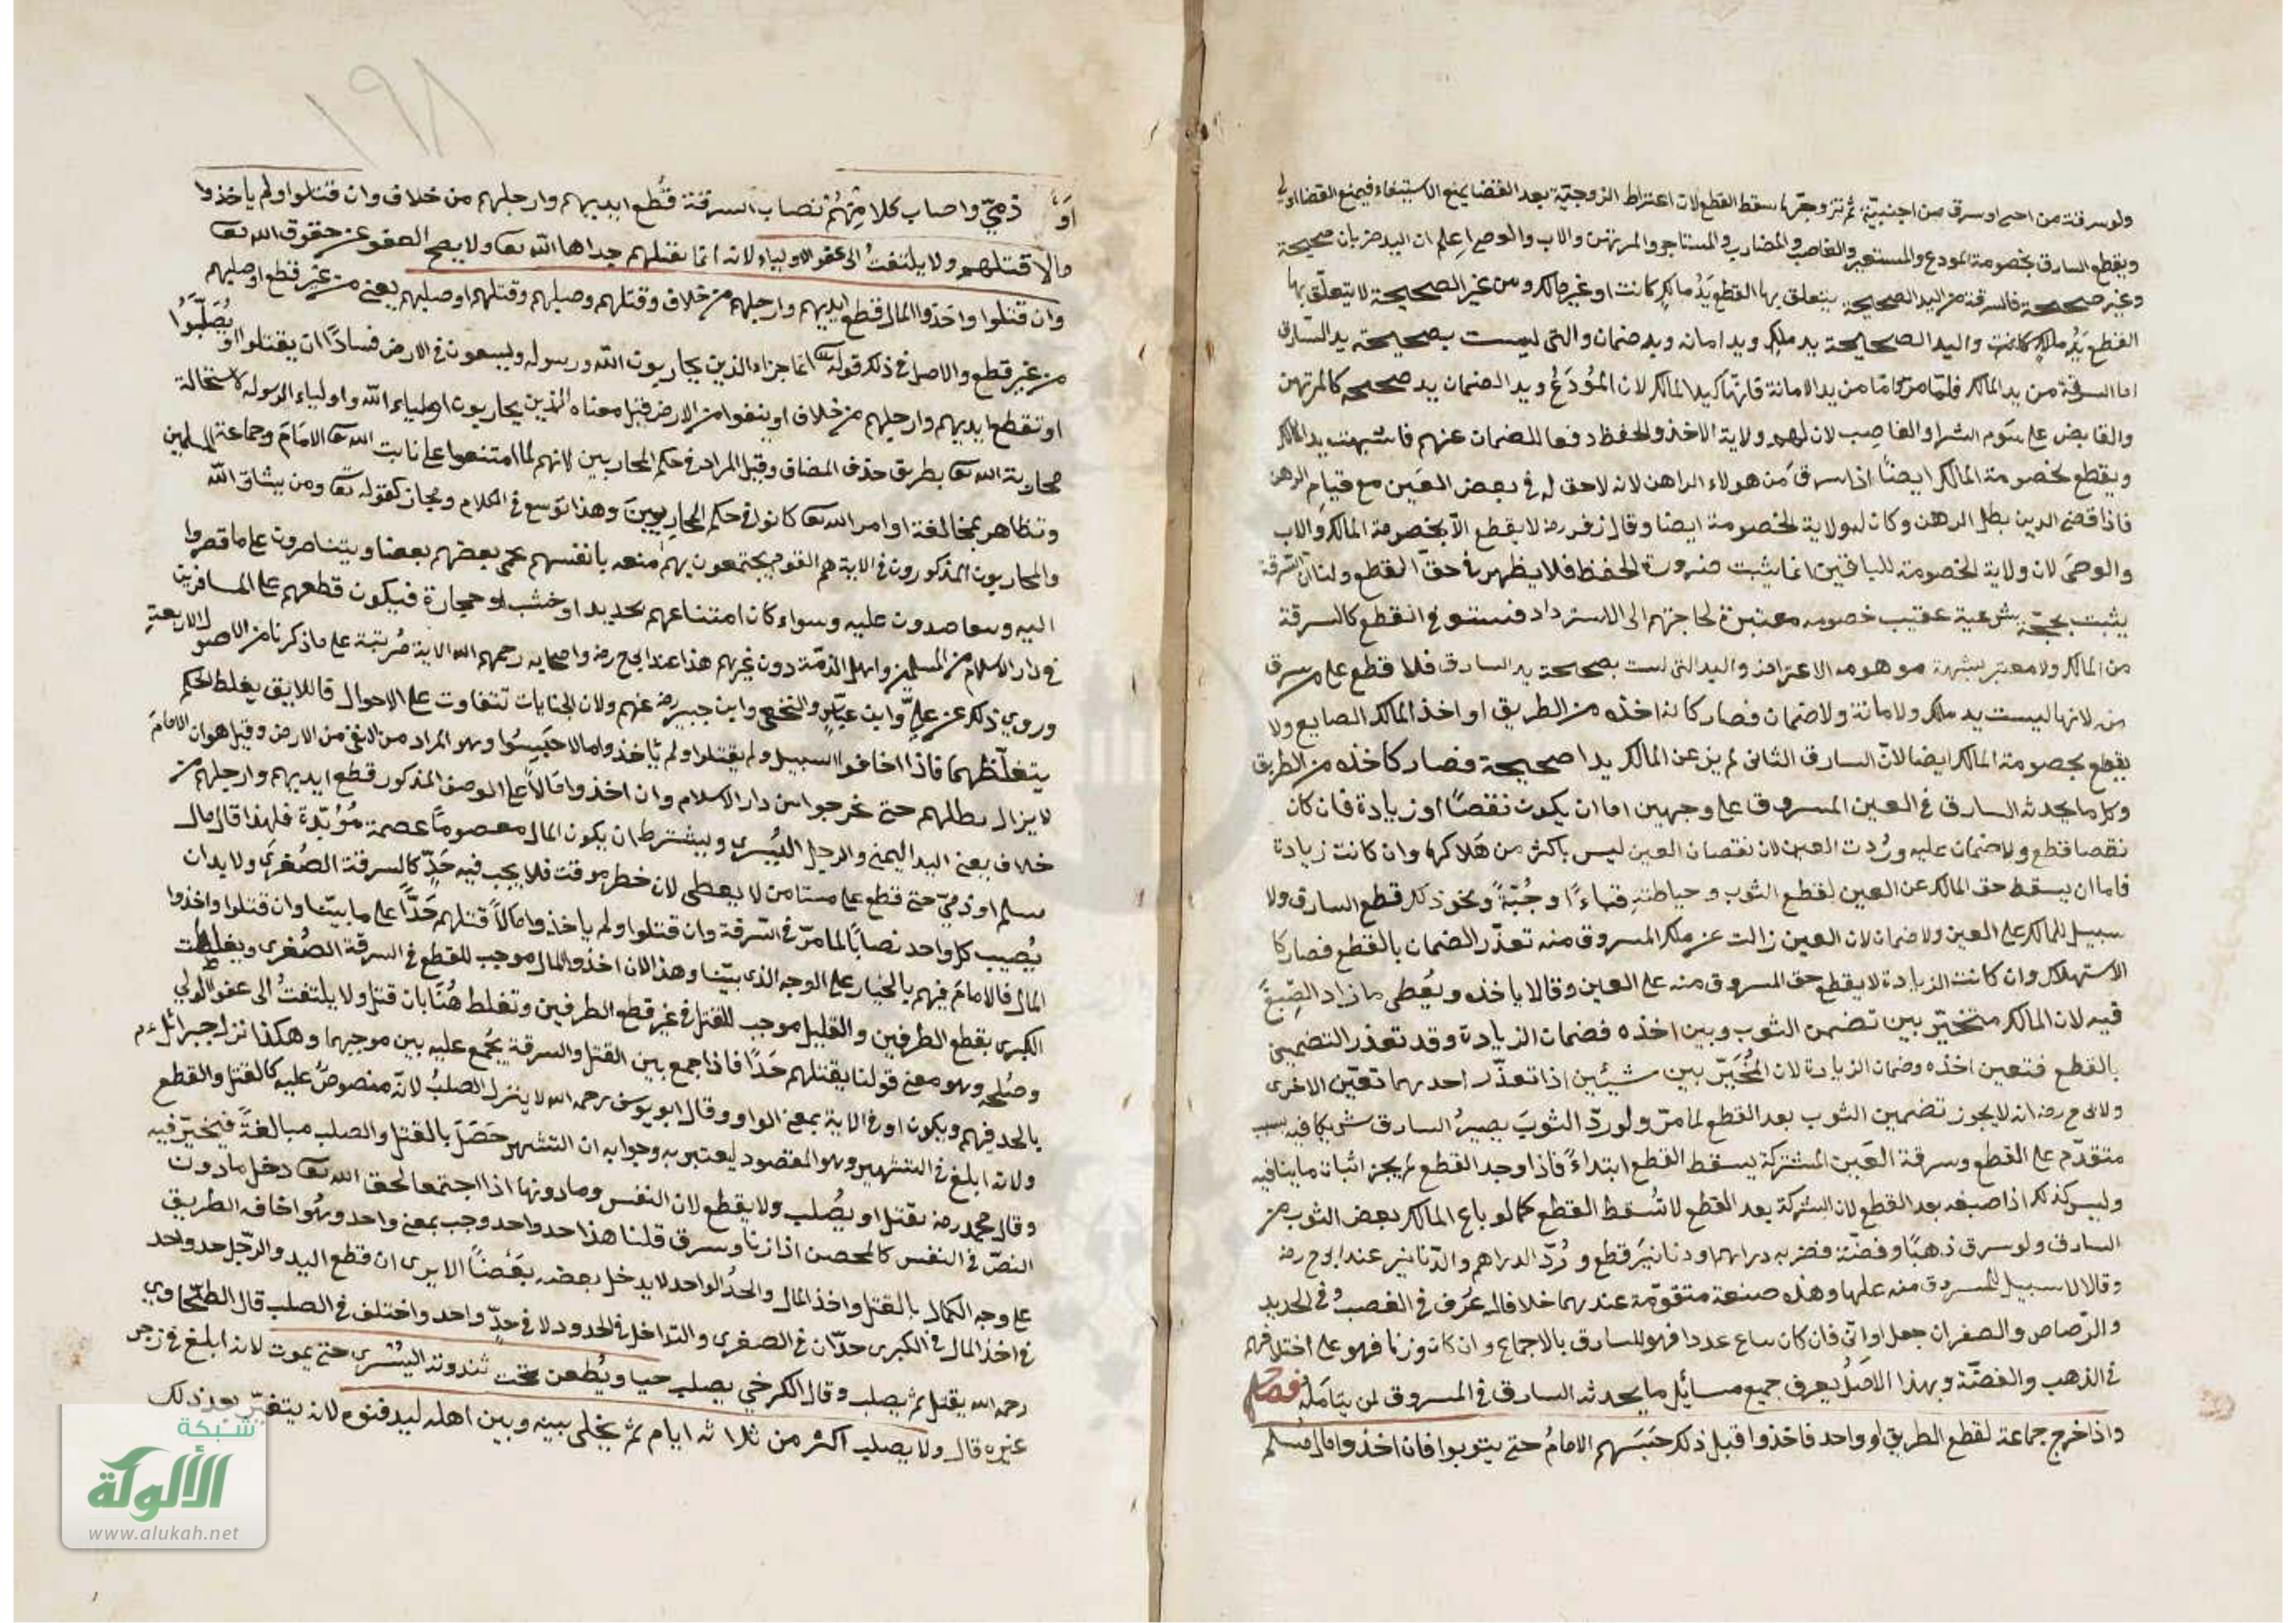 ولو سرقة من احد او سرق من اجنبية ثم تزوجتها سقط القطع لان اعتراط الزوجية بعد القضا يمنع الاستيفاء فيمنع القضا اولى
ويقطع السارق بخصومة المودع والمستعير والغاصب والمضارب والمستاجر والمرتهن والاب والوصي اعلم ان اليد ضربان صحيحة
وغير صحيحة فالسرقة من اليد الصحيحة يتعلق بها القطع يد مالك كانت او غير مالك ومن غير الصحيحة لا يتعلق بها
القطع يد مالك كانت واليد الصحيحة يد ملك ويد امانه ويد ضمان والتى ليست بصحيحة يد السارق
اما السرقة من يد المالك فلما مر واما من يد الامانة فانها كيد المالك لان المودع ويد الضمان يد صحيحه كالمرتهن
والقابض على سوم الشرا والغاصب لان لهم ولاية الاخذ والحفظ دفعا للضمان عنهم فاشبهت يد المالك
ويقطع بخصومة المالك ايضا اذا سرق من هولاء الا الراهن لانه لا حق له في بعض العين مع قيام الرهن
فاذا قضى الدين بطل الرهن وكان له ولاية الخصومة ايضا وقال زفر رض لا يقطع الا بخصومة المالك والاب
والوصى لان ولاية الخصومة للباقين انما يثبت ضرورة الحفظ فلا يظهر في حق القطع ولنا ان السرقة
يثبت بحجة شرعية عقيب خصومه معتبرة لحاجتهم الى الاسترداد فيستوفى القطع كالسرقة
من المالك ولا معتبر بشبهة موهومه الاعتراض واليد التى ليست بصحيحة يد السارق فلا قطع على من سرق
من لانها ليست يد ملك ولا امانة ولا ضمان فصار كانه اخذه من الطريق او اخذ المالك الضايع ولا
يقطع بخصومة المالك ايضا لان السارق الثانى لم يزل عن المالك يدا صحيحة فصار كاخذه من الطريق
وكل ما يحدثه السارق في العين المسروق على وجهين اما ان يكون نقصا او زيادة فان كان
نقصا قطع ولا ضمان عليه وردت العين لان نقصان العين ليس باكثر من هلاكها وان كانت زيادة
فاما ان يسقط حق المالك عن العين لقطع الثوب وخياطته قباءا وجبة ونحو ذلك قطع السارق ولا
سبيل للمالك على العين ولا ضمان لان العين زالت عن ملك المسروق منه تعذر الضمان بالقطع فصار كا
الاستهلاك وان كانت الزيادة لا يقطع حق المسروق منه على العين وقالا ياخذه ويعطى ما زاد الصبغ
فيه لان المالك متخير بين تضمن الثوب وبين اخذه فضمان الزيادة وقد تعذر التضمين
بالقطع فتعين اخذه وضمان الزيادة لان المخير بين شيئين اذا تعذر احدهما تعين الاخرى
ولابى ح رض انه لا يجوز تضمين الثوب بعد القطع لما مر ولو رد الثوب يصير السارق شريكا فيه بسبب
متقدم على القطع وسرقة العين المشتركة يسقط القطع ابتداء فاذا وجد القطع لم يجز اثبات ما ينافيه
وليس كذلك اذا صبغه بعد القطع لان الشركة بعد القطع لا تسقط القطع كما لو باع المالك بعض الثوب من
السارق ولو سرق ذهبا وفضة فضربه دراهم او دنانير قطع ورد الدراهم والدنانير عند ابى ح رض
وقالا لا سبيل للمسروق منه عليها وهذه صنعة متقومة عندهما خلافا له عرف في الغصب وفي الحديد
والرصاص والصفر ان جعل اوانى فان كان يباع عددا فهو للسارق بالاجماع وان كان وزنا فهو على اختلافهم
في الذهب والفضة وبهذا الاصل يعرف جميع مسائل ما يحدثه السارق في المسروق لمن يتامله فصل
واذا خرج جماعة لقطع الطريق او واحد فاخذوا قبل ذلك حبسهم الامام حتى يتوبوا فان اخذوا مال مسلم
١٩٨
او ذمي واصاب كلا منهم نصاب السرقة قطع ايديهم وارجلهم من خلاف وان قتلوا ولم ياخذوا
مالا قتلهم ولا يلتفت الى عفو الاولياء لانه انما يقتلهم حدا لله تعا ولا يصح العفو عن حقوق الله تعا
وان قتلوا واخذوا المال قطع ايديهم وارجلهم من خلاف وقتلهم وصلبهم وقتلهم او صلبهم يعنى من غير قطع او صلبهم
من غير قطع والاصل في ذلك قوله تعا انما جزاء الذين يحاربون الله ورسوله ويسعون في الارض فسادا ان يقتلوا او يصلبوا
او تقطع ايديهم وارجلهم من خلاف او ينفوا من الارض قيل معناه الذين يحاربون اولياء الله واولياء الرسول لاستحالة
محاربة الله تعا بطريق حذف المضاف وقيل المراد في حكم المحاربين لانهم لما امتنعوا على نابت الله تعا الامام وجماعة المسلمين
وتظاهر بمخالفة اوامر الله تعا كانوا في حكم المحاربين وهذا توسع في الكلام ومجاز كقوله تعا ومن يشاق الله
والمحاربون المذكورون في الاية هم القوم يجتمعون بهم منعه بانفسهم يحمى بعضهم بعضا ويتناصرون على ما قصروا
اليه ويعاضدون عليه وسواء كان امتناعهم بحديد او خشب او حجارة فيكون قطعهم على المسافرين
في دار الاسلام من المسلمين واهل الذمة دون غيرهم هذا عند ابى ح رض واصحابه رحمهم الله الاية مرتبة على ما ذكرنا من الاحوال الاربعة
وروي ذلك عن علي وابن عباس والنخعي وابن جبير رض عنهم ولان الجنايات تتفاوت على الاحوال فاللايق يغلظ الحكم
يتغلظهما فاذا اخافوا السبيل ولم يقتلوا ولم ياخذوا مالا حبسوا وهو المراد من النفى من الارض وقيل هو ان الامام
لا يزال يطلبهم حتى يخرجوا من دار الاسلام وان اخذوا مالا على الوصف المذكور قطع ايديهم وارجلهم من
خلاف يعنى اليد اليمنى والرجل اليسرى ويشترط ان يكون المال معصوما عصمة مؤبدة فلهذا قال مال
مسلم او ذمي حتى قطع على مستامن لا يعطى لان خطره موقت فلا يجب فيه حد كالسرقة الصغرى ولا بد ان
يصيب كل واحد نصابا لما مر في السرقة وان قتلوا ولم ياخذوا مالا قتلهم حدا على ما بينا وان قتلوا واخذوا
المال فالامام فيهم بالخيار على الوجه الذى بينا وهذا لان اخذ المال موجب للقطع في السرقة الصغرى ويغلظت
الكبرى بقطع الطرفين والقليل موجب للقتل في غير قطع الطرفين وتغلط هنا بان قتل ولا يلتفت الى عفو الولي
وصلحه وهو معنى قولنا يقتلهم حدا فاذا جمع بين القتل والسرقة يجمع عليه بين موجبهما وهكذا نزل جبرائيل ء م
بالحد فيهم ويكون او في الاية بمعنى الواو وقال ابو يوسف رحمه الله لا ينزل الصلب لانه منصوص عليه كالقتل والقطع
ولانه ابلغ في التشهير وهو المقصود ليعتبر به وجوابه ان التشهير حصل بالقتل والصلب مبالغة فيتخير فيه
وقال محمد رض يقتل او يصلب ولا يقطع لان النفس وما دونها اذا اجتمعا لحق الله تعا دخل ما دون
النص في النفس كالمحصن اذا زنا وسرق قلنا هذا حد واحد وجب بمعنى واحد وهو اخافة الطريق
على وجه الكمال بالقتل واخذ المال والحد الواحد لا يدخل بعضه بعضا الا يرى ان قطع اليد والرجل حد واحد
في اخذ المال في الكبرى حدان في الصغرى والتداخل في الحدود لا في حد واحد واختلف في الصلب قال الطحاوي
رحمه الله يقتل ثم يصلب وقال الكرخي يصلب حيا ويطعن تحت ثندوته اليسرى حتى يموت لانه ابلغ في زجر
غيره قال ولا يصلب اكثر من ثلاثه ايام ثم يخلى بينه وبين اهله ليدفنوه لانه يتغير بعد ذلك
شبكة
الألوكة
www.alukah.net